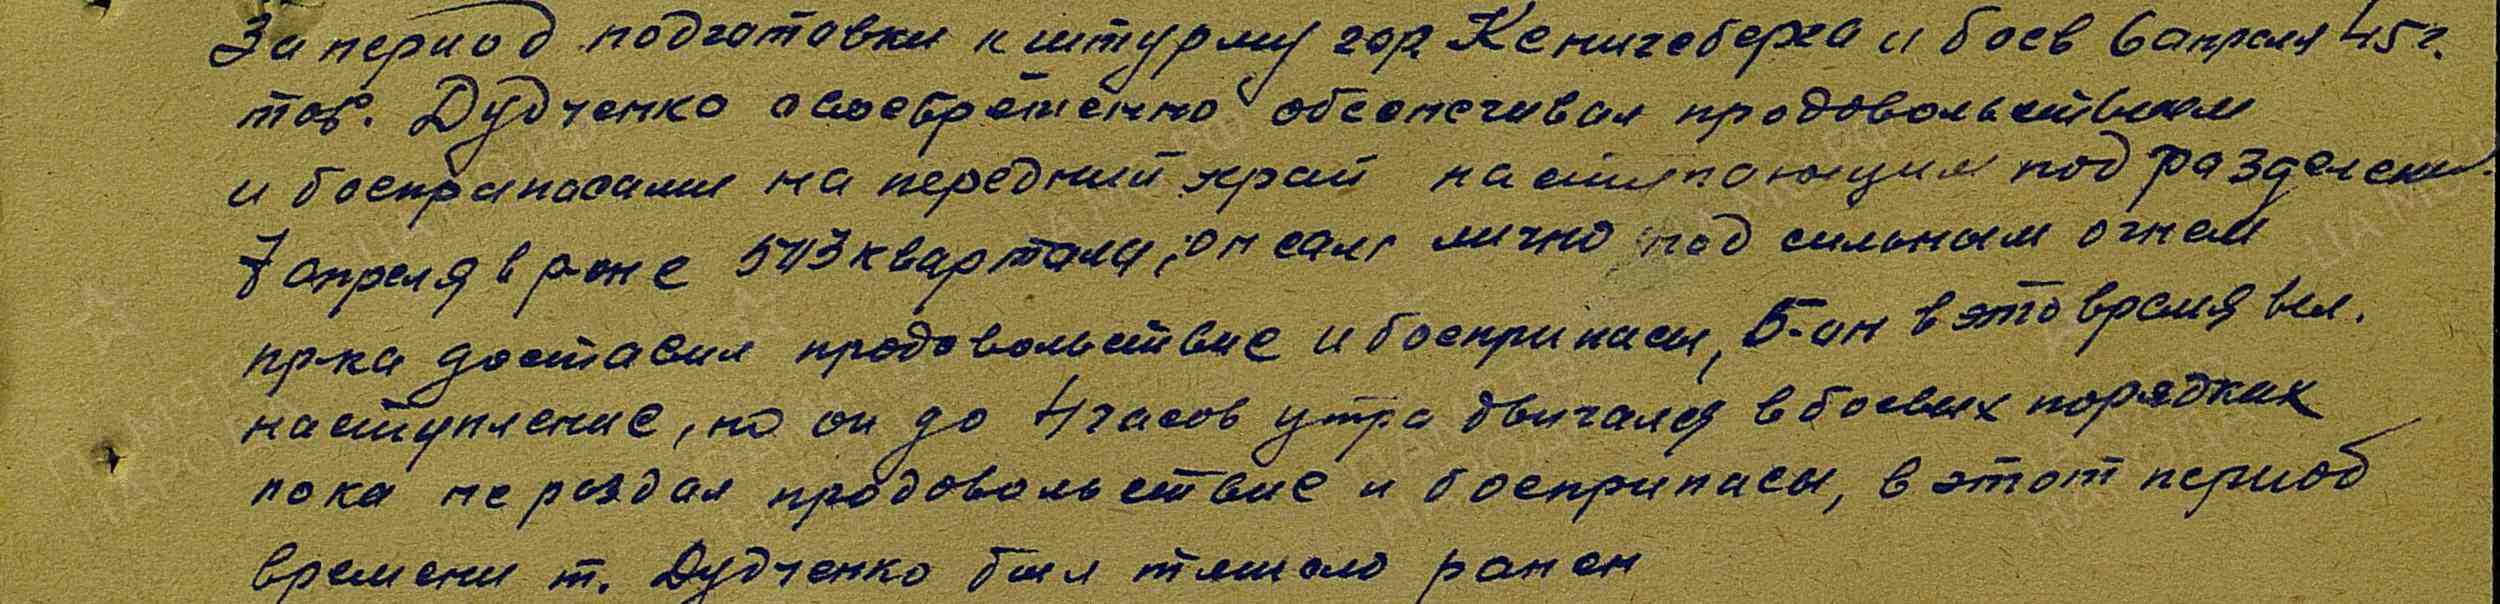 За период подготовки к штурму гор Кенигсберга и боев 6 апреля 45 г.
тов. Дудченко своевременно обеспечивал продовольствием
и боеприпасами на передний край наступающим подразделени.
7 апреля в р-оне 543 квартала, он сам лично под сильным огнем
пр-ка доставил продовольствие и боеприпасы, Б-он в это время вел.
наступление, но он до 4 часов утра двигался в боевых порядках
пока не раздал продовольствие и боеприпасы, в этот период
времени т. Дудченко был тяжело ранен